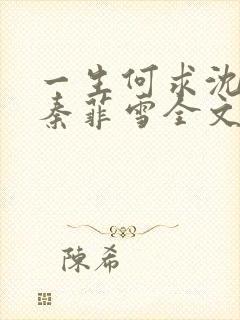 一生何求沈
秦菲雪全文
陳希